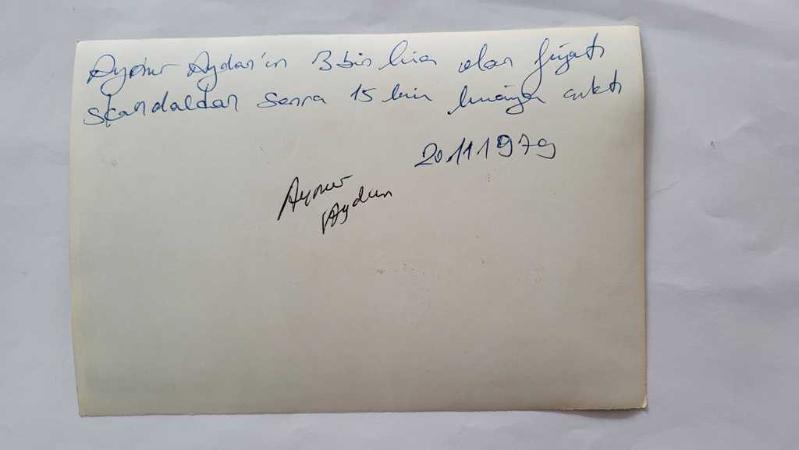 Aynur Aydan'ın 3 bin lira olan fiyatı
skandaldan sonra 15 bin liraya çıktı
20.11.1979
Aynur
Aydan